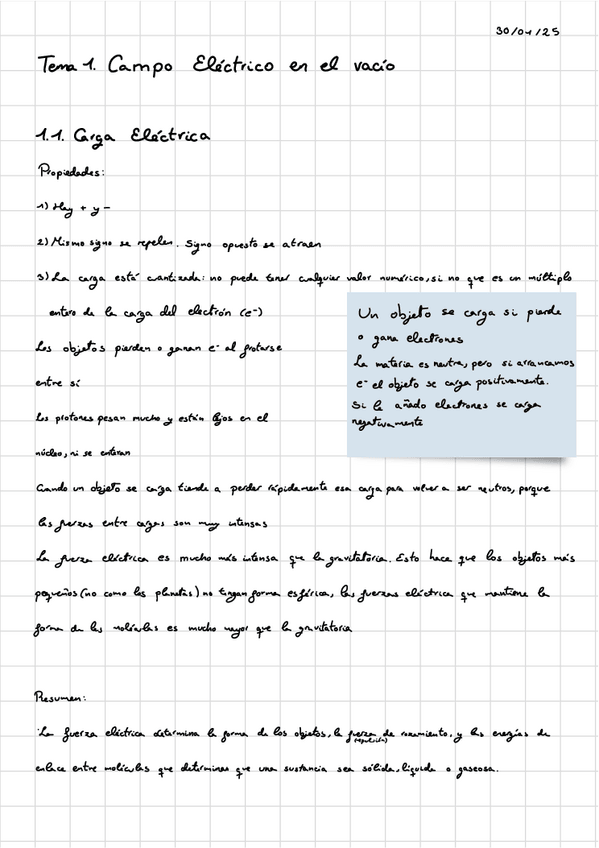 30/01/25
Tema 1. Campo Eléctrico en el vacío
1.1. Carga Eléctrica
Propiedades:
1) Hay + y -
2) Mismo signo se repelen. Signo opuesto se atraen
3) La carga está cuantizada: no puede tener cualquier valor numérico, si no que es un múltiplo
entero de la carga del electrón (e-)
Los objetos pierden o ganan e- al frotarse
entre sí
Los protones pesan mucho y están fijos en el
núcleo, ni se enteran
Un objeto se carga si pierde
o gana electrones
La materia es neutra, pero si arrancamos
e- el objeto se carga positivamente.
Si le añado electrones se carga
negativamente
Cuando un objeto se carga tiende a perder rápidamente esa carga para volver a ser neutros, porque
las fuerzas entre cargas son muy intensas
La fuerza eléctrica es mucho más intensa que la gravitatoria. Esto hace que los objetos más
pequeños (no como los planetas) no tengan forma esférica, las fuerzas eléctrica que mantiene la
forma de las moléculas es mucho mayor que la gravitatoria
Resumen:
La fuerza eléctrica determina la forma de los objetos, la fuerza de rozamiento, y las energías de
(repulsión)
enlace entre moléculas que determinan que una sustancia sea sólida, líquida o gaseosa.